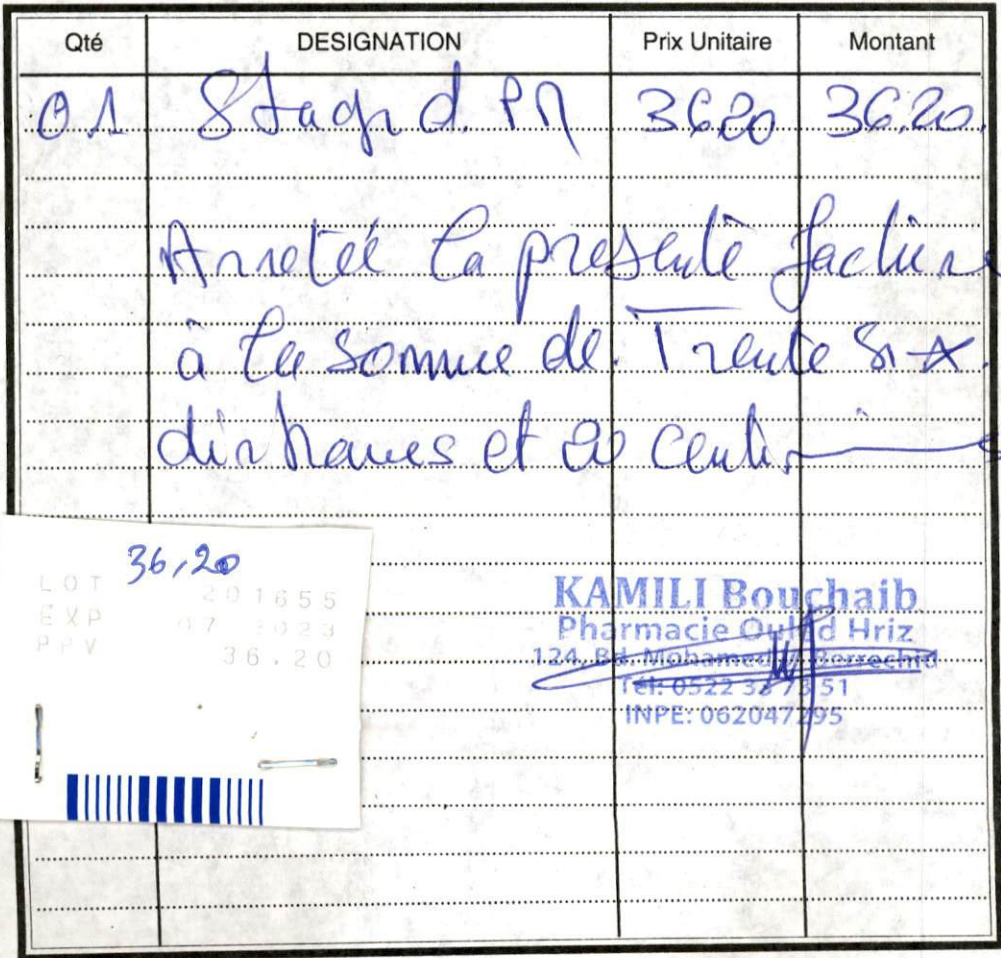 Qté DESIGNATION Prix Unitaire Montant
01 Stagid PM 36.20 36.20
Arretée la presente facture
à la somme de Trente six
dirhames et 20 centimes
36,20
LOT 201655
EXP 07 2023
PPV 36.20
KAMILI Bouchaib
Pharmacie Ouled Hriz
124, Bd. Mohamed V Berrechid
Tél: 0522 33 73 51
INPE: 062047295